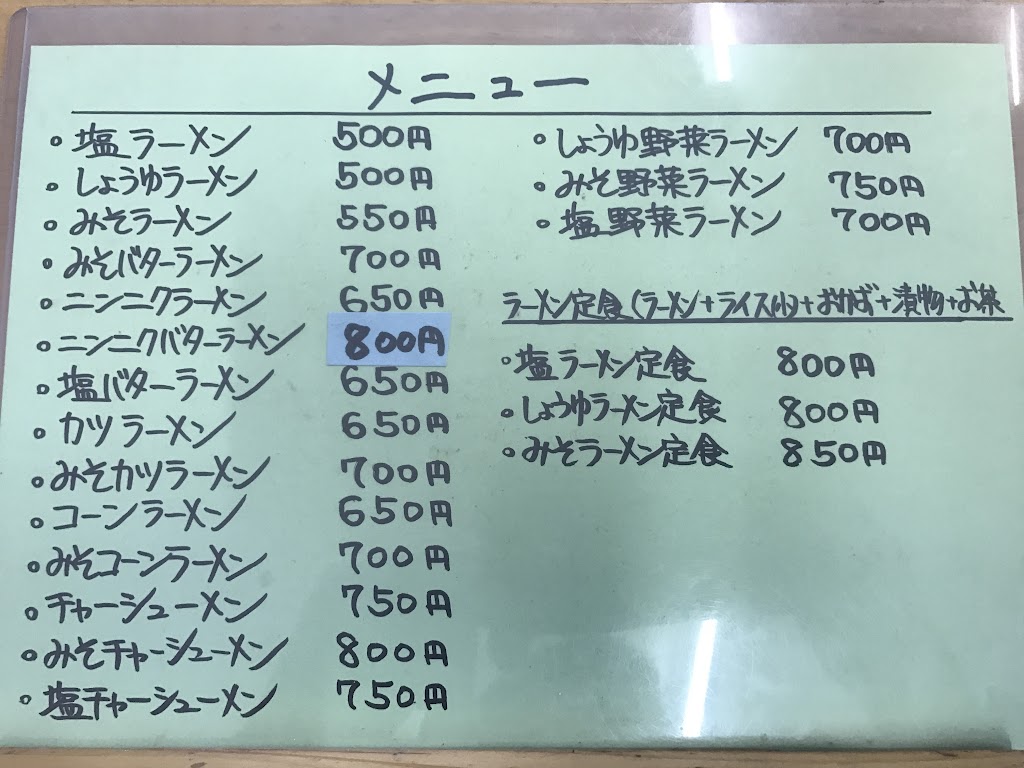 メニュー
。塩ラーメン 500円
。しょうゆラーメン 500円
。みそラーメン 550円
。みそバターラーメン 700円
。ニンニクラーメン 650円
。ニンニクバターラーメン 800円
。塩バターラーメン 650円
。カツラーメン 650円
。みそカツラーメン 700円
。コーンラーメン 650円
。みそコーンラーメン 700円
。チャーシューメン 750円
。みそチャーシューメン 800円
。塩チャーシューメン 750円
。しょうゆ野菜ラーメン 700円
。みそ野菜ラーメン 750円
。塩野菜ラーメン 700円
ラーメン定食(ラーメン+ライス(小)+おかず+漬物+お茶
。塩ラーメン定食 800円
。しょうゆラーメン定食 800円
。みそラーメン定食 850円